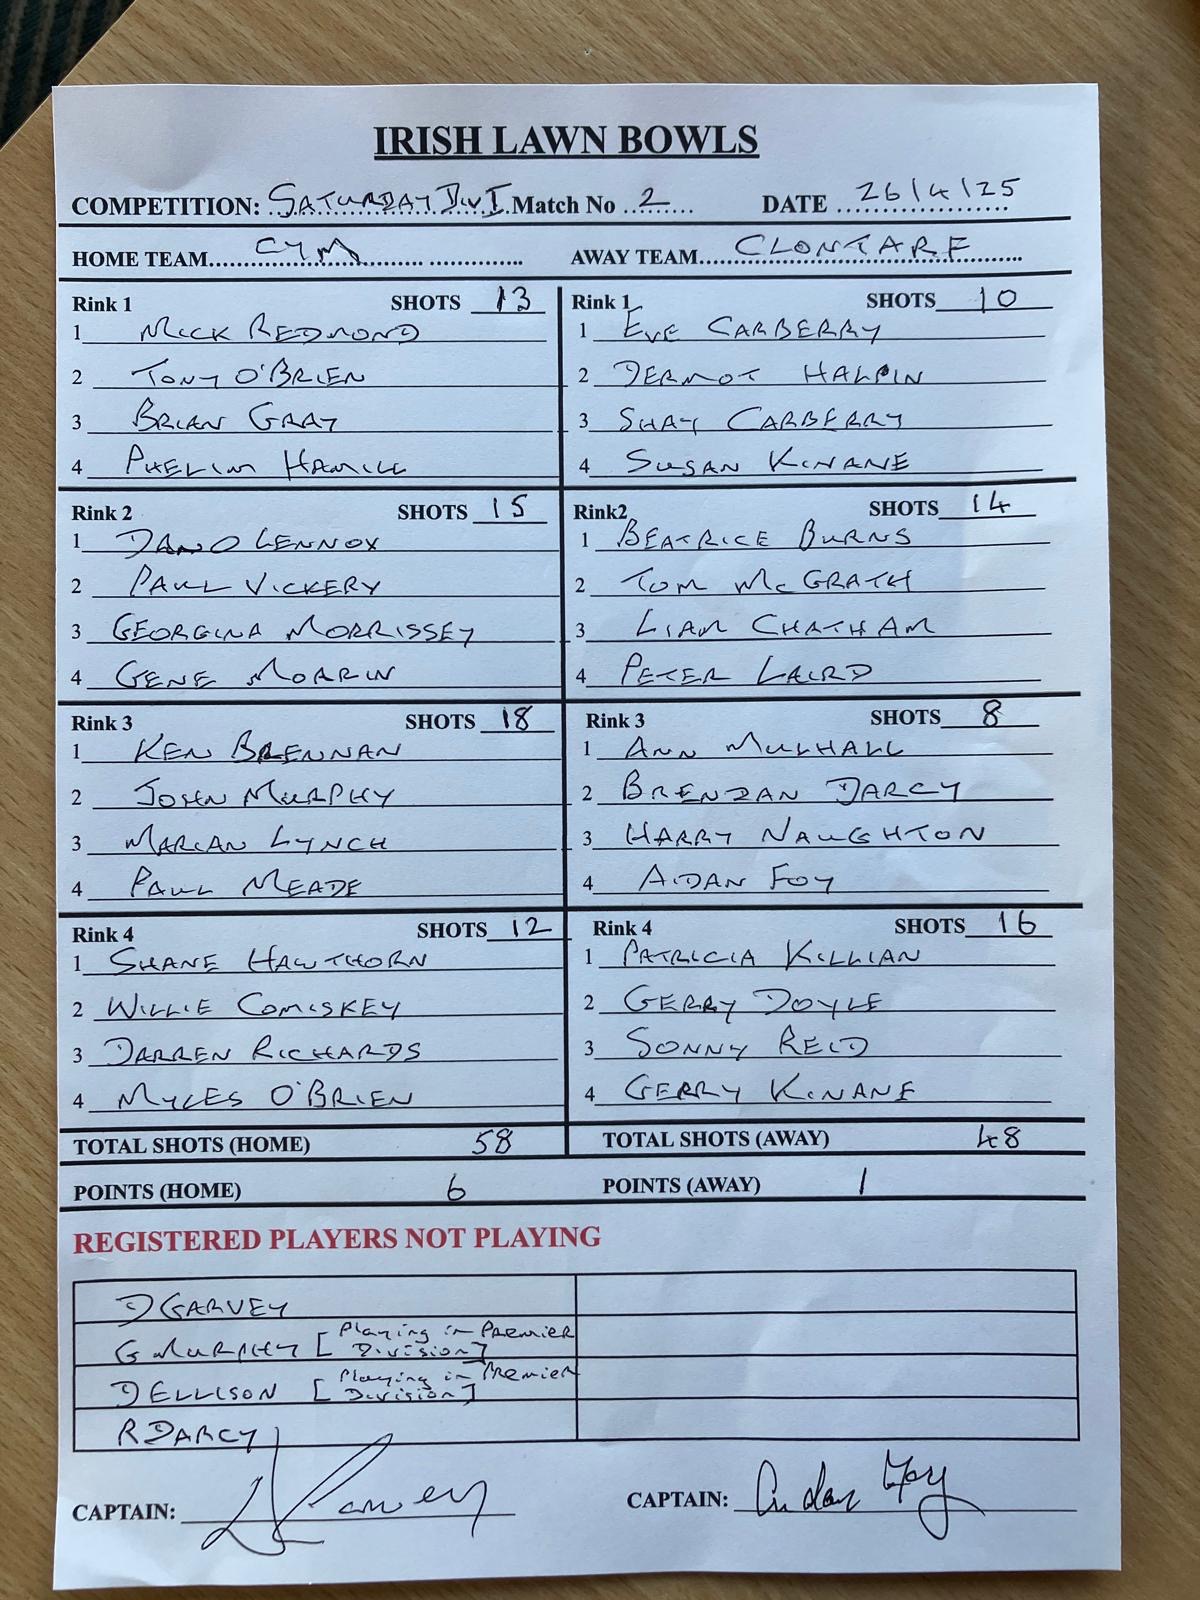 IRISH LAWN BOWLS
COMPETITION: SATURDAY DIV I Match No 2 DATE 26/4/25
HOME TEAM CYM AWAY TEAM CLONTARF
Rink 1 SHOTS 13
1 MICK REDMOND
2 TONY O'BRIEN
3 BRIAN GRAY
4 PHELIM HAMILL
Rink 1 SHOTS 10
1 EVE CARBERRY
2 DERMOT HALPIN
3 SHAY CARBERRY
4 SUSAN KINANE
Rink 2 SHOTS 15
1 DANO LENNOX
2 PAUL VICKERY
3 GEORGINA MORRISSEY
4 GENE MORRIN
Rink2 SHOTS 14
1 BEATRICE BURNS
2 TOM McGRATH
3 LIAM CHATHAM
4 PETER LAIRD
Rink 3 SHOTS 18
1 KEN BRENNAN
2 JOHN MURPHY
3 MARIAN LYNCH
4 PAUL MEADE
Rink 3 SHOTS 8
1 ANN MULHALL
2 BRENDAN DARCY
3 HARRY NAUGHTON
4 AIDAN FOY
Rink 4 SHOTS 12
1 SHANE HAWTHORN
2 WILLIE COMISKEY
3 DARREN RICHARDS
4 MYLES O'BRIEN
Rink 4 SHOTS 16
1 PATRICIA KILLIAN
2 GERRY DOYLE
3 SONNY REID
4 GERRY KINANE
TOTAL SHOTS (HOME) 58 TOTAL SHOTS (AWAY) 48
POINTS (HOME) 6 POINTS (AWAY) 1
REGISTERED PLAYERS NOT PLAYING
D GARVEY
G MURPHY [Playing in PREMIER
Division]
D ELLISON [Playing in PREMIER
Division]
R DARCY
CAPTAIN: D Garvey CAPTAIN: Aidan Foy